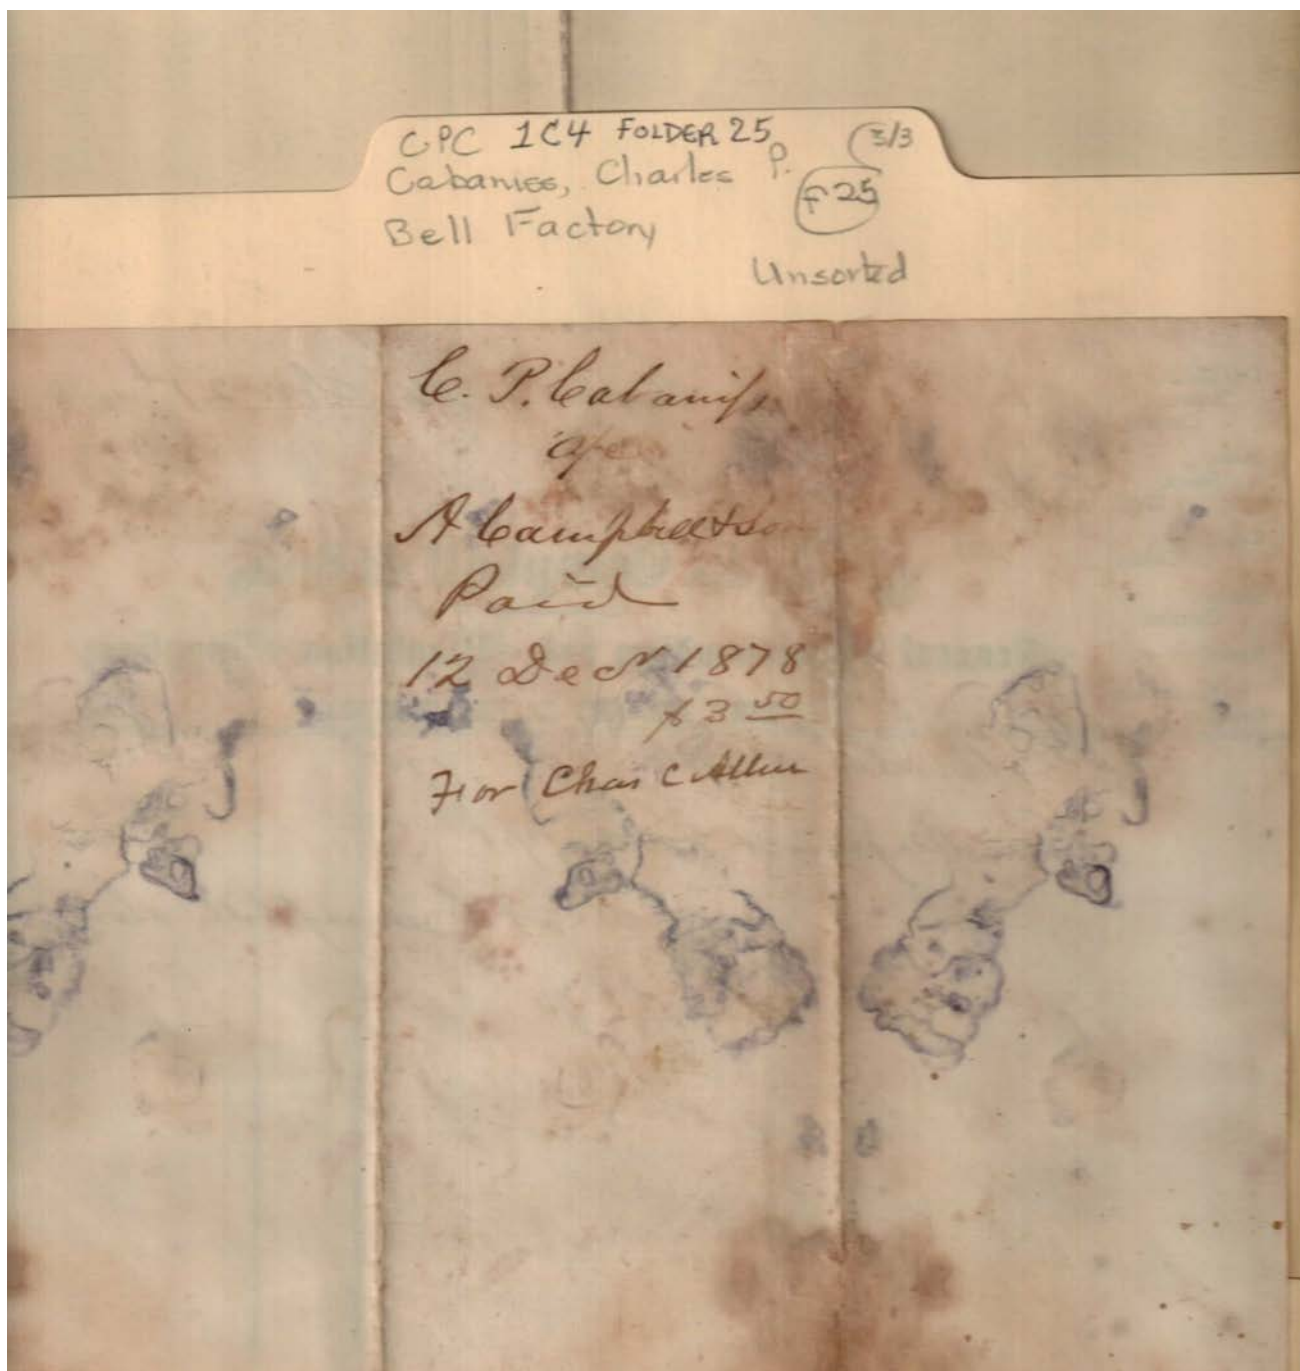 CPC 1C4 FOLDER 25 3/3
Cabaniss, Charles P.
F 25
Bell Factory
Unsorted
C. P. Cabaniss
A Campbell & Son
Paid
12 Decr 1878
$3 50
For Chas C Allen